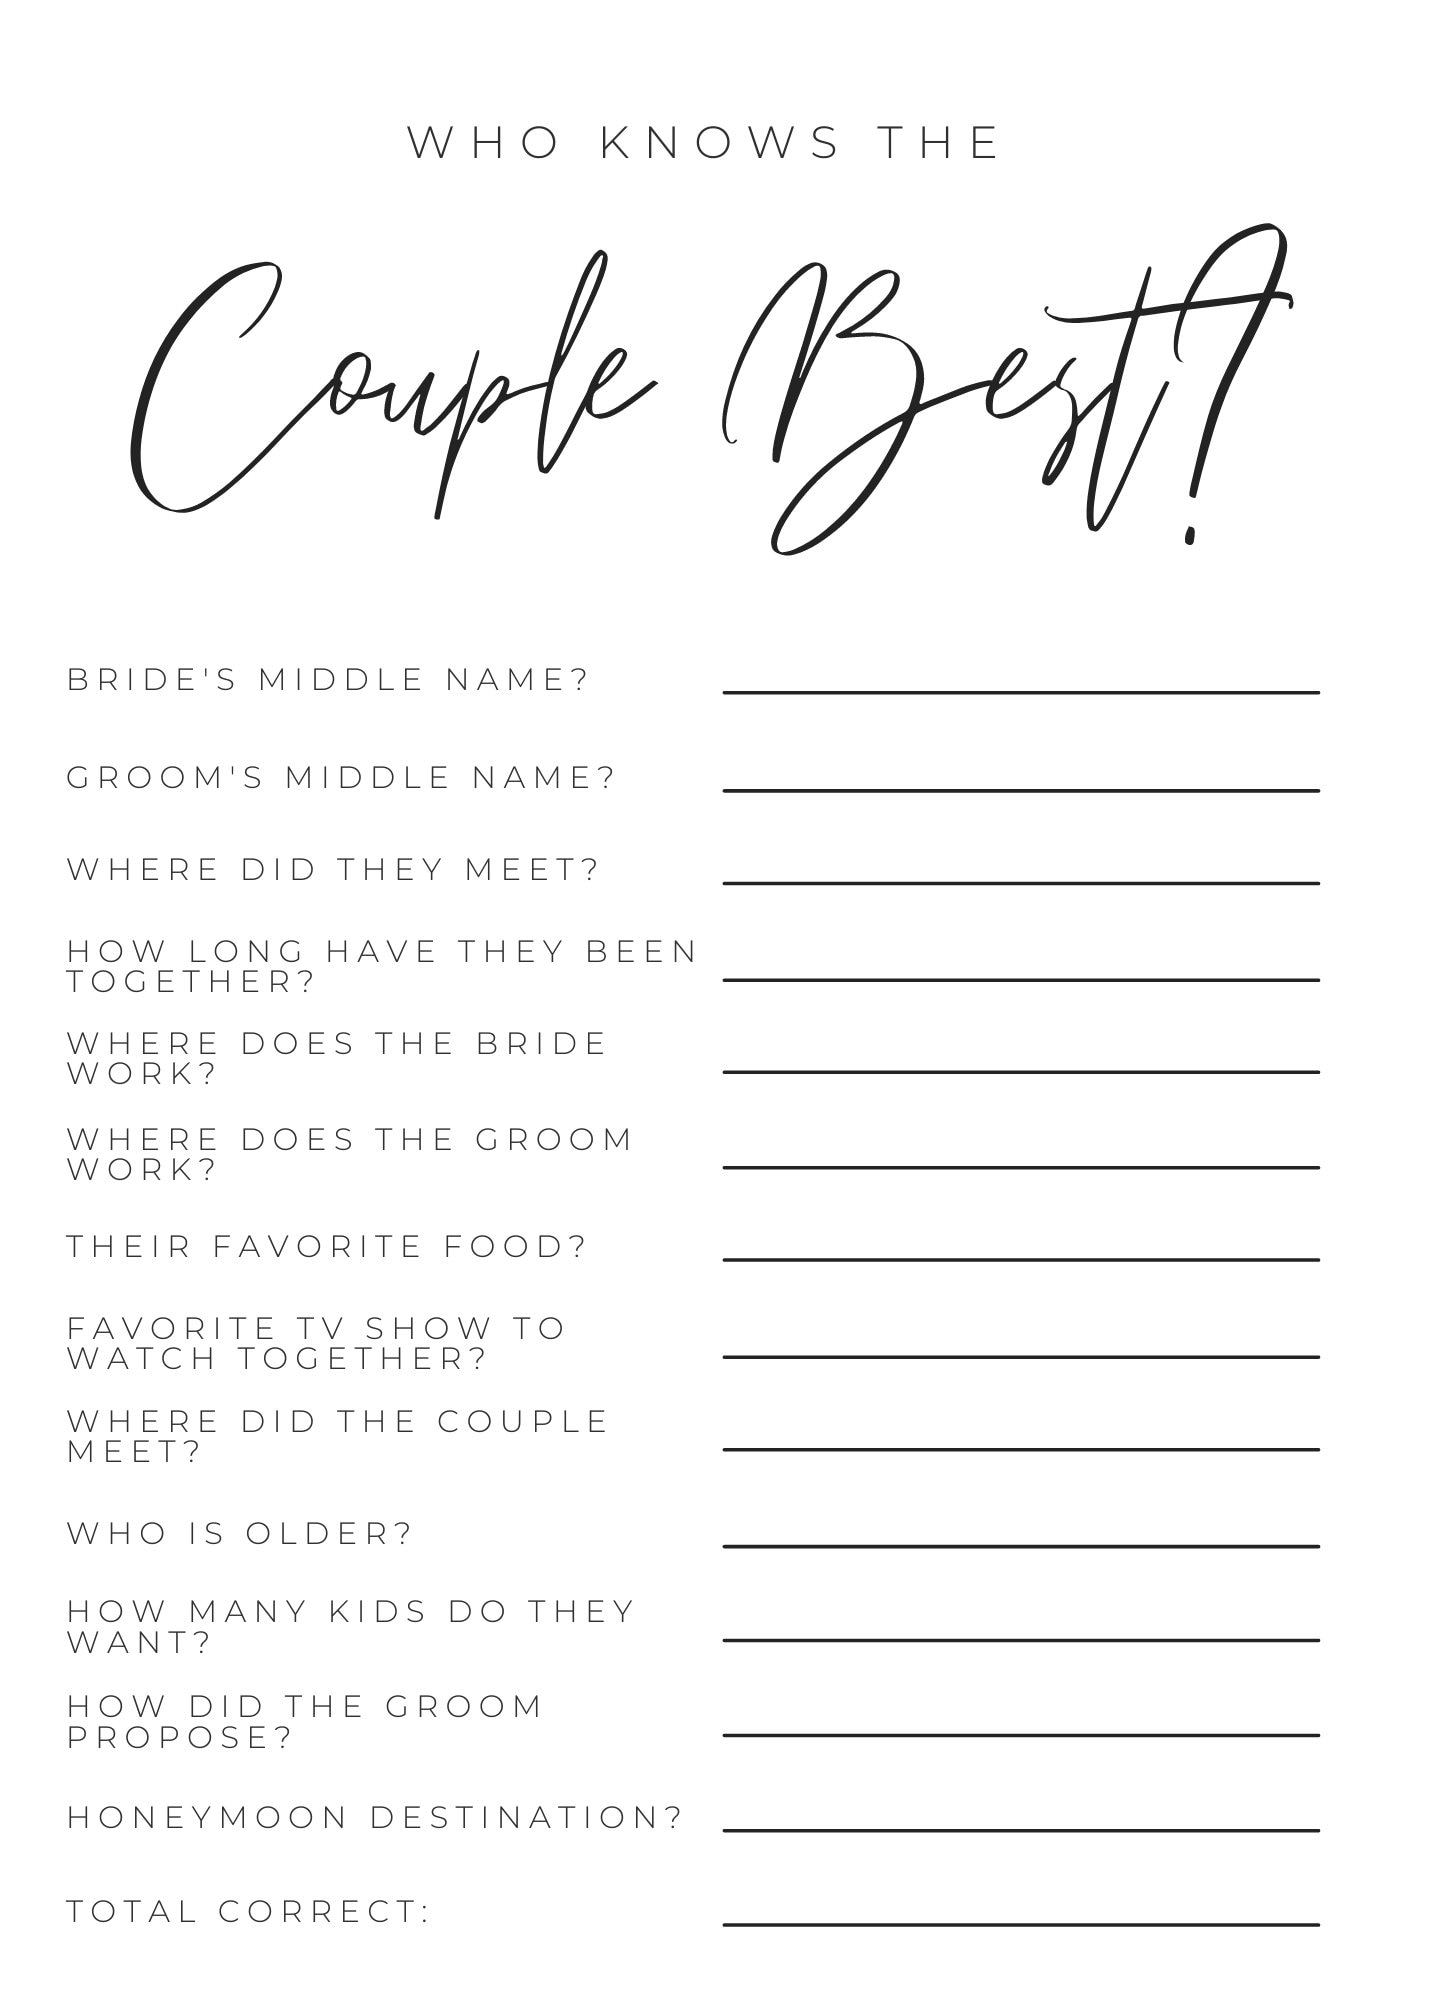 WHO KNOWS THE
Couple Best?
BRIDE'S MIDDLE NAME?
GROOM'S MIDDLE NAME?
WHERE DID THEY MEET?
HOW LONG HAVE THEY BEEN
TOGETHER?
WHERE DOES THE BRIDE
WORK?
WHERE DOES THE GROOM
WORK?
THEIR FAVORITE FOOD?
FAVORITE TV SHOW TO
WATCH TOGETHER?
WHERE DID THE COUPLE
MEET?
WHO IS OLDER?
HOW MANY KIDS DO THEY
WANT?
HOW DID THE GROOM
PROPOSE?
HONEYMOON DESTINATION?
TOTAL CORRECT: